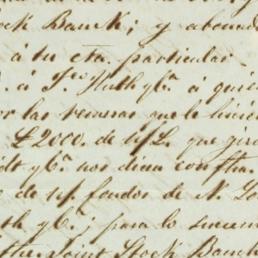 ock Bank; y abona
á tu cta. particular.
á Fco. Huth y Ca. á quie
or las remesas que le hicié
£2000. de 
que gir
y Ca. nos dicen con fha.
de 
fondos de N. Yo
th y Ca.; para lo suces
the Joint Stock Bank